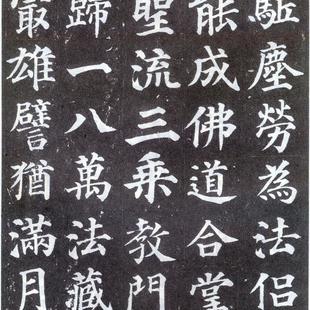 駈塵勞為法侶
能成佛道合掌
聖流三乘教門
歸一八萬法藏
最雄譬猶滿月